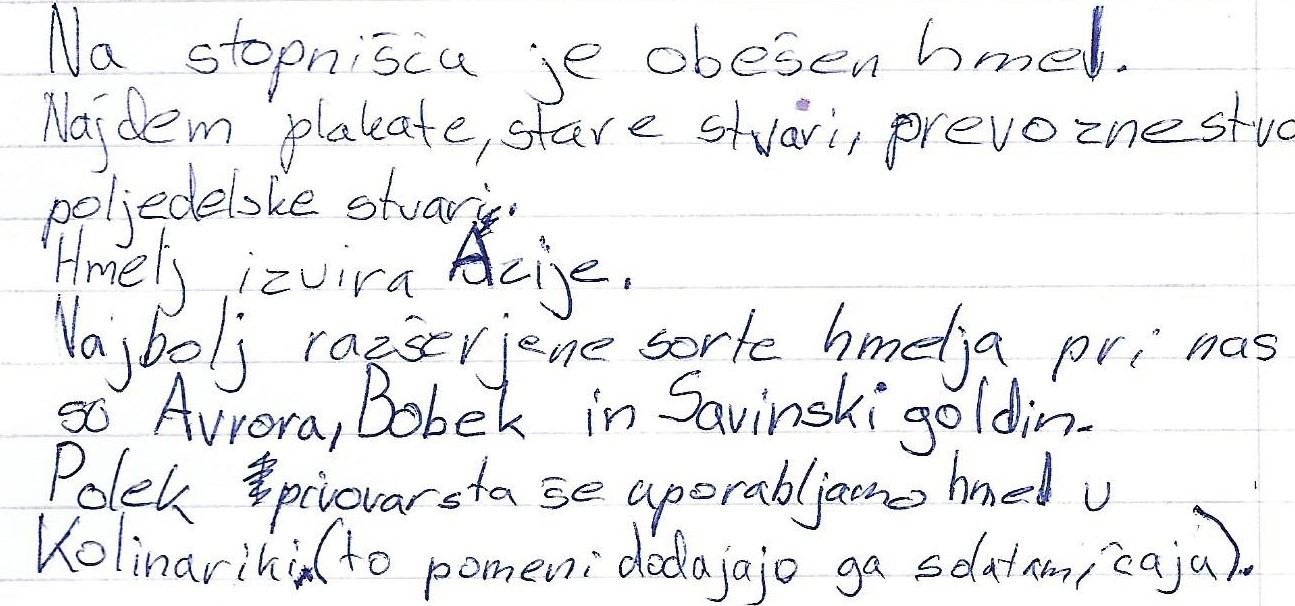 Na stopnišču je obešen hmel.
Najdem plakate, stare stvari, prevoznestvo
poljedelske stvari.
Hmelj izvira Azije.
Najbolj razšerjene sorte hmelja pri nas
so Avrora, Bobek in Savinski goldin.
Polek pivovarsta še uporabljamo hmel u
Kolinariki (to pomeni dodajajo ga solatam, čaju).